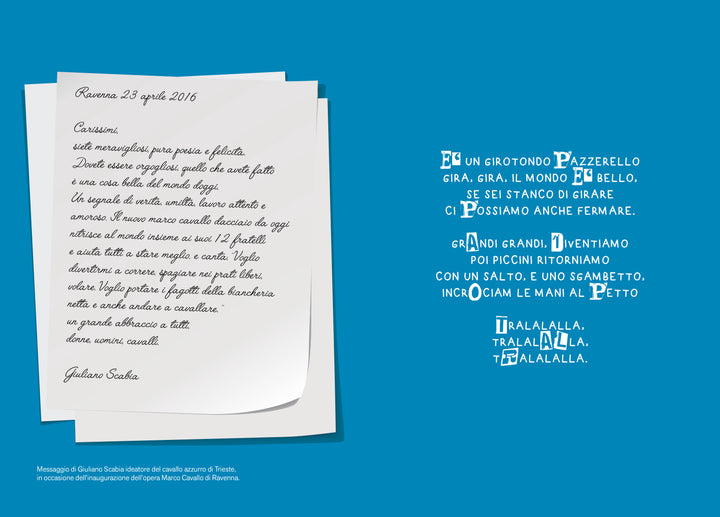 Ravenna 23 aprile 2016
Carissimi,
siete meravigliosi, pura poesia e felicità.
Dovete essere orgogliosi, quello che avete fatto
è una cosa bella del mondo doggi.
Un segnale di verità, umiltà, lavoro attento e
amoroso. Il nuovo marco cavallo dacciaio da oggi
nitrisce al mondo insieme ai suoi 12 fratelli
e aiuta tutti a stare meglio, e canta: Voglio
divertirmi a correre spaziare nei prati liberi,
volare. Voglio portare i fagotti della biancheria
netta e anche andare a cavallare."
un grande abbraccio a tutti,
donne, uomini, cavalli.
Giuliano Scabia
Messaggio di Giuliano Scabia ideatore del cavallo azzurro di Trieste,
in occasione dell'inaugurazione dell'opera Marco Cavallo di Ravenna.
E' UN GIROTONDO PAZZERELLO
GIRA, GIRA, IL MONDO E' BELLO,
SE SEI STANCO DI GIRARE
CI POSSIAMO ANCHE FERMARE.
GRANDI GRANDI, DIVENTIAMO
POI PICCINI RITORNIAMO
CON UN SALTO, E UNO SGAMBETTO,
INCROCIAM LE MANI AL PETTO
TRALALALLA,
TRALALALLA,
TRALALALLA.